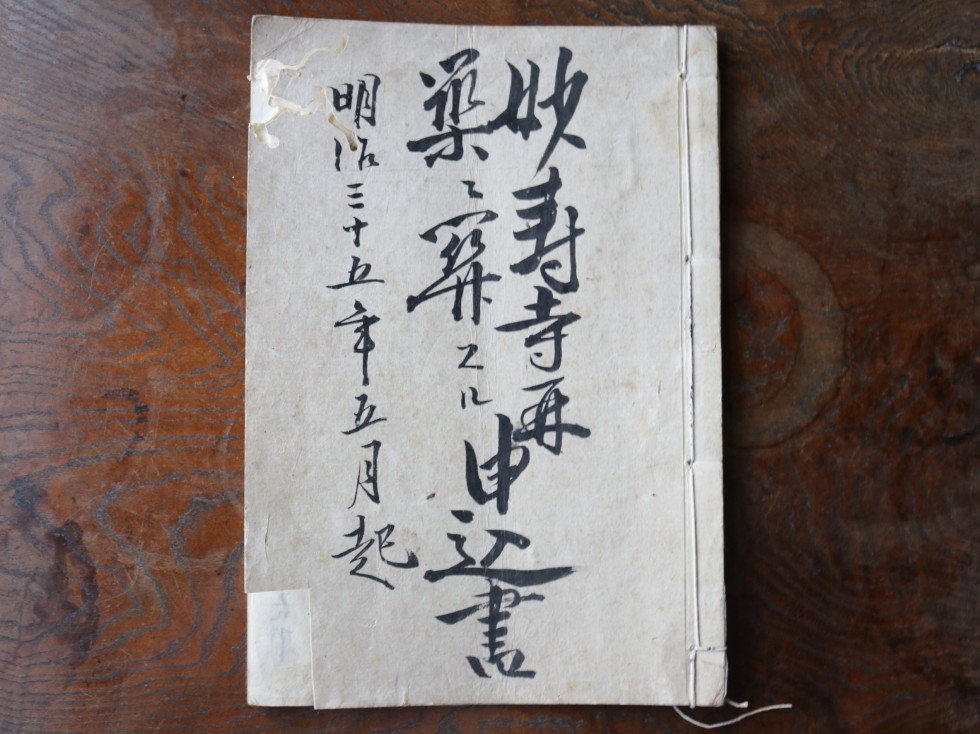 妙寿寺再
築ニ関スル
申込書
明治三十五年五月起